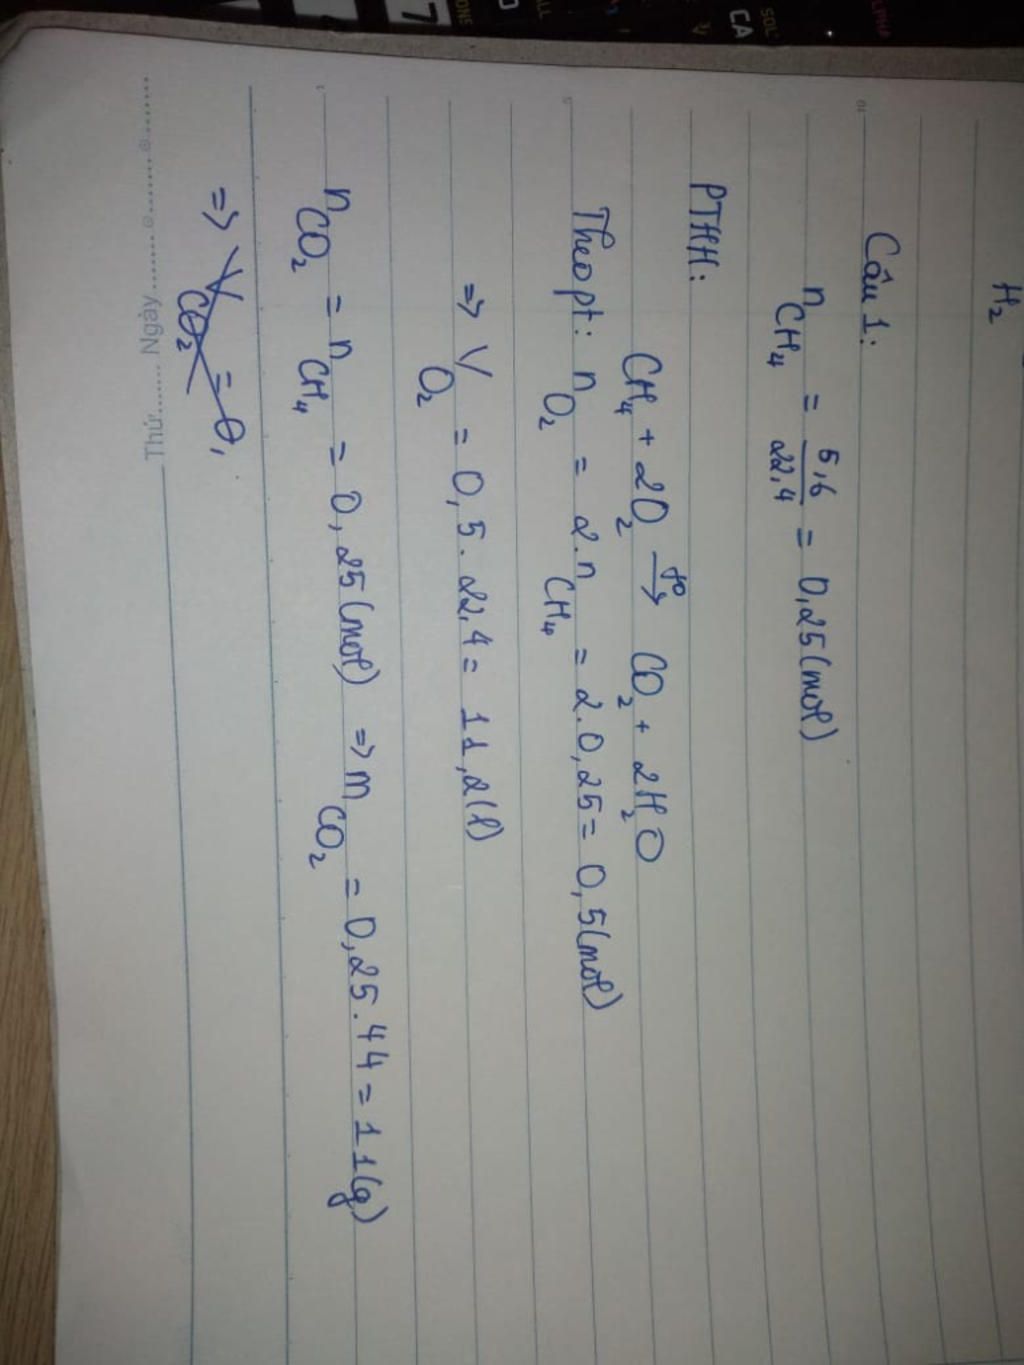 H₂
Câu 1:
n CH₄ = 5,6/22,4 = 0,25 (mol)
PTHH:
CH₄ + 2O₂ →(t°) CO₂ + 2H₂O
Theo pt: n O₂ = 2.n CH₄ = 2.0,25 = 0,5 (mol)
=> V O₂ = 0,5.22,4 = 11,2 (l)
n CO₂ = n CH₄ = 0,25 (mol) => m CO₂ = 0,25.44 = 11 (g)
=> V CO₂ = 0,
Thứ....... Ngày.......
7
CA
ALL
SOL
ALPHA